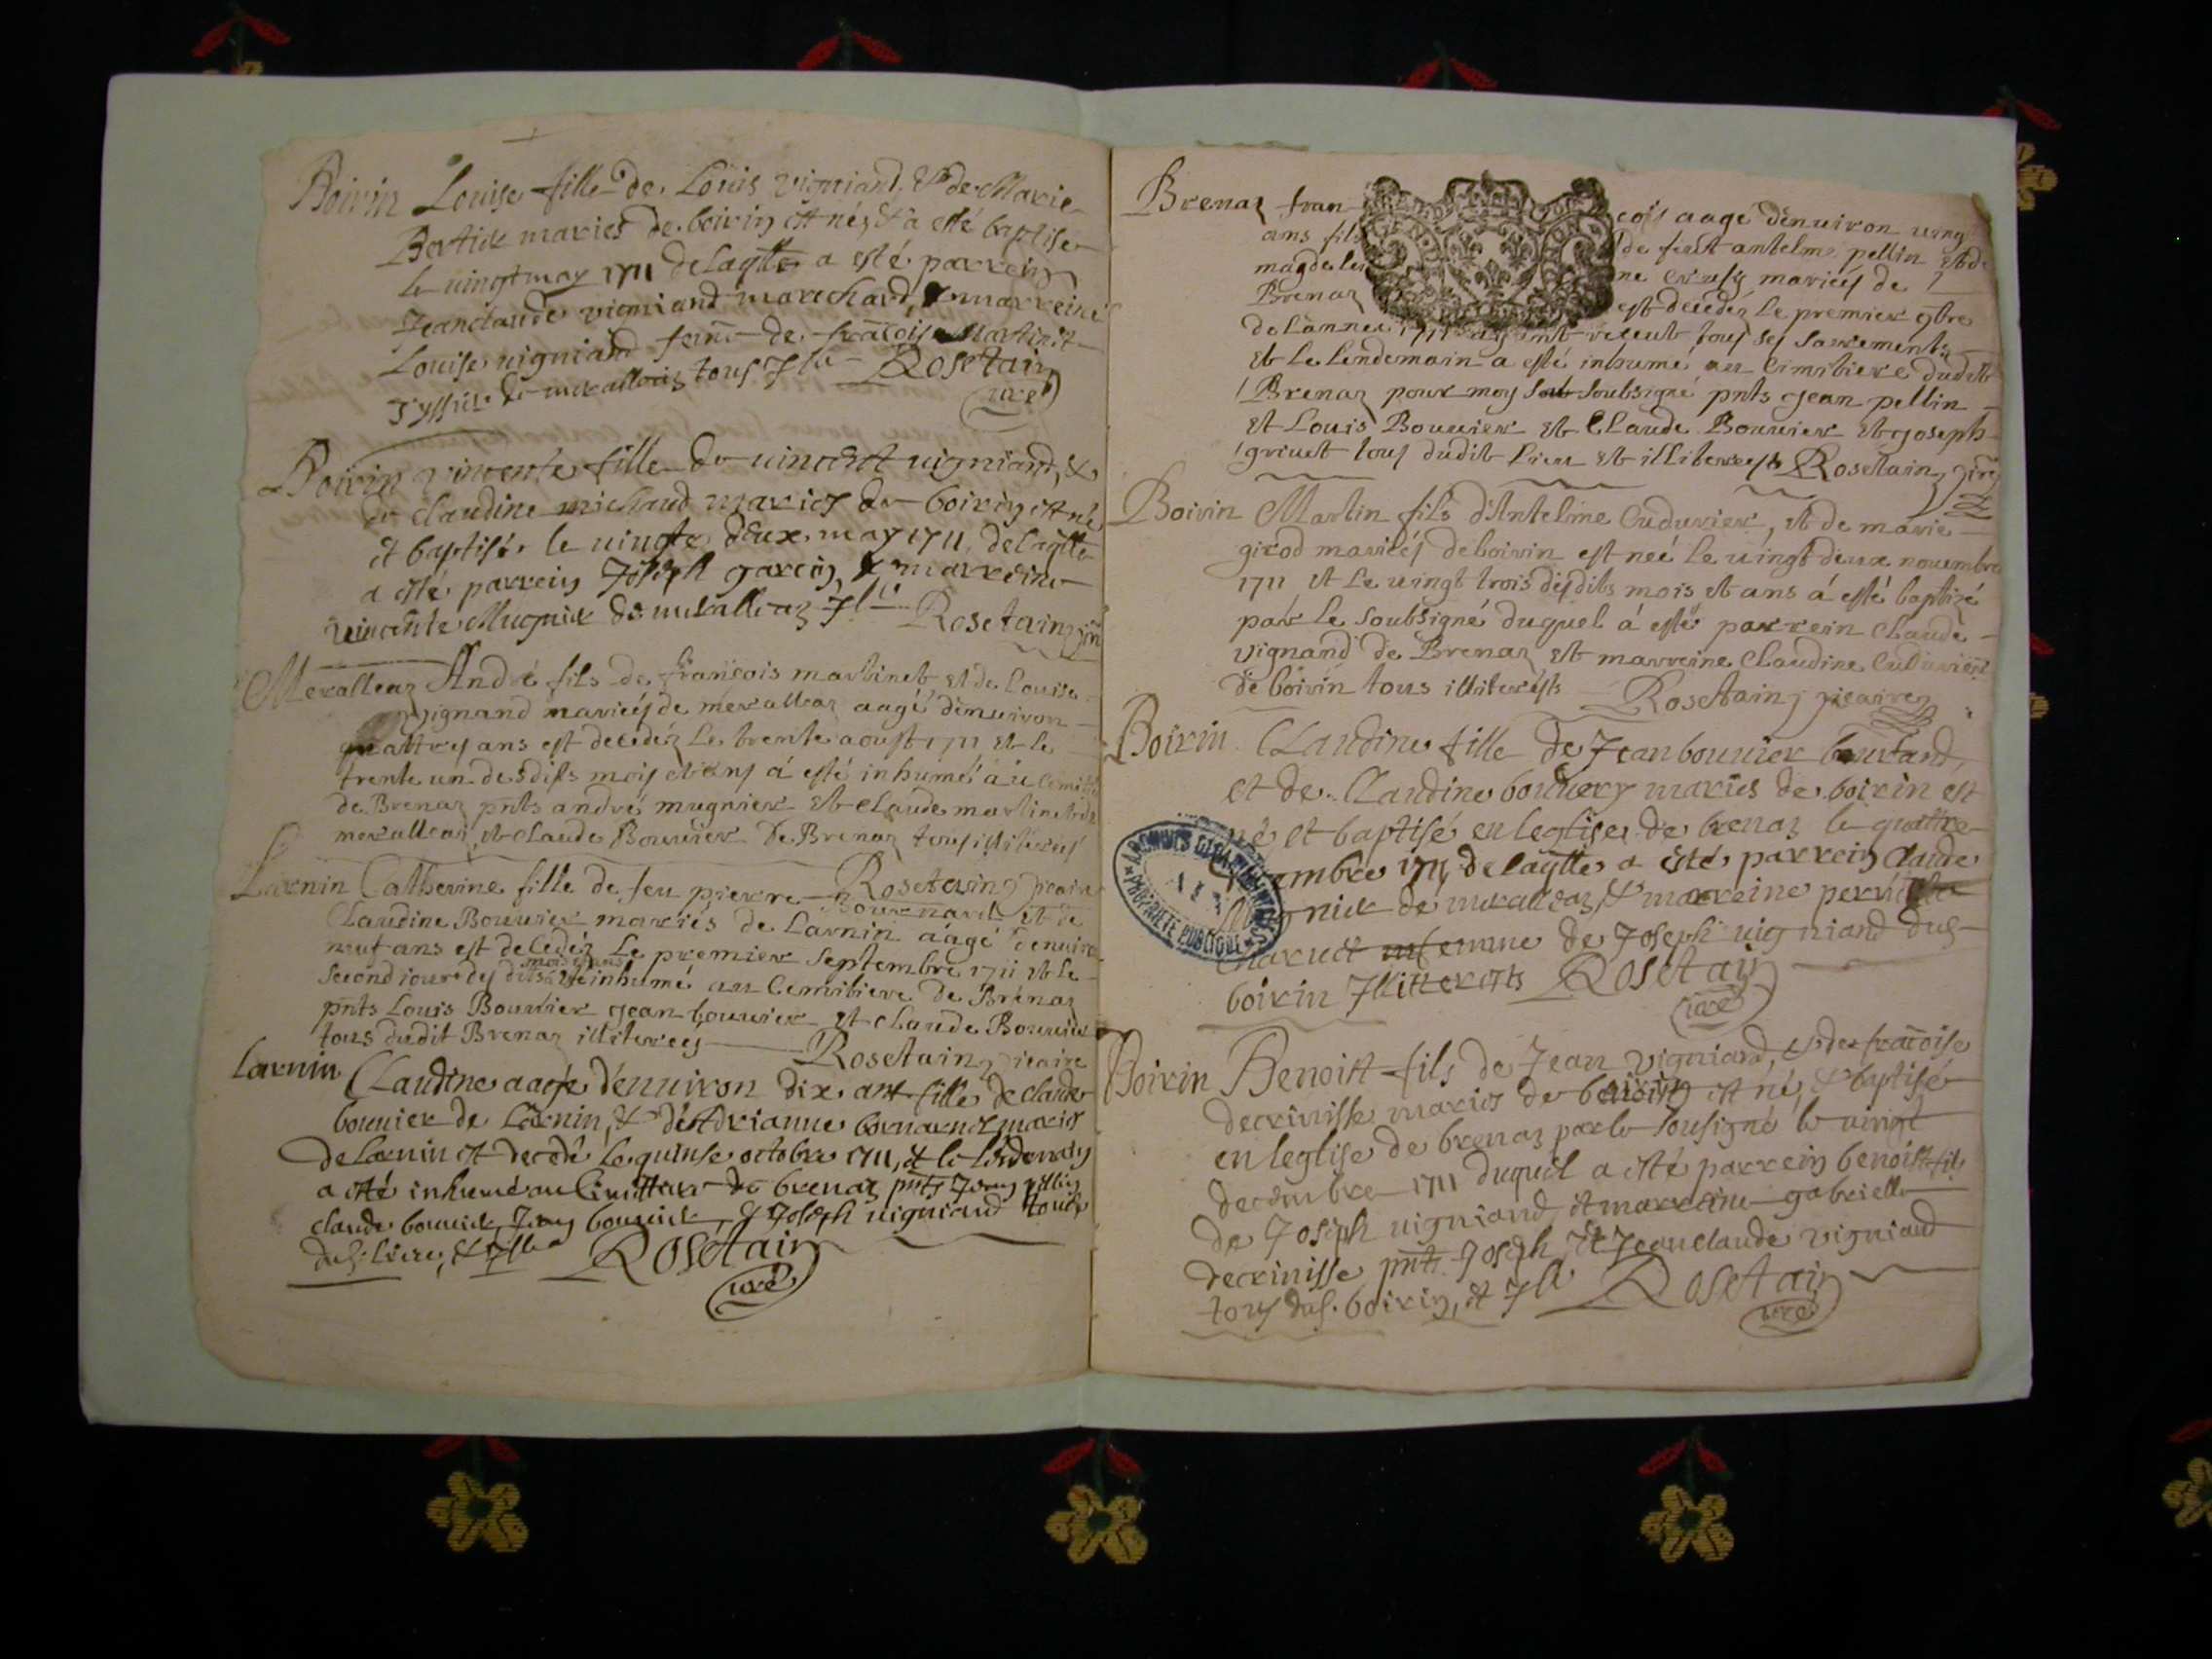 Boirin Louise fille de Louis vigniand, & de Marie
Bertiet maries de boirin est née & a esté baptisée
le uingt may 1711 de laqlle a esté parrein
Jeanclaude vigniand marechard, & marreine
Louise uigniand feme de francois Martinet
tous Jlle Rosetain
vire
Boirin vincente fille de uincent uigniand, &
de claudine michaud maries de boirin est née
et baptisée le uingte deux may 1711, de laqlle
a esté parrein Joseph garcin, & marreine
uincente Mugnier de meralleaz Jll Rosetain
Meralleaz André fils de françois martinet et de Louise
vignand mariés de meralleaz aagé denuiron
quattres ans est decedéz le trente aoust 1711 et le
trente un desdits mois et ans á esté inhumé au
de Brenaz pnts andré mugnier et claude martinet de
meralleaz, et claude Bouuier de Brenaz tous illiteres
Larnin Catherine fille de feu pierre Rosetain vicaire
Bournard et de
Claudine Bouuier mariés de Larnin aagé denuiro
neuf ans est decedéz le premier septembre 1711 et le
mois et ans
second jour des dits a été inhumé au Cemitiere de Brenaz
pnts Louis Bouuier jean bouuier et claude Bouuier
tous dudit Brenaz illiterees Rosetain vicaire
Larnin Claudine aagée d'enuiron dix ans fille de claude
bouuier de Larnin, & de Adrianne bornarnd maries
de Larnin est decedé le quinse octobre 1711, & le lendemain
a esté inhumé au Cimittiere de brenaz pnts Jean pillin
claude bouuier, Jean bouuier, & Joseph uigniand tous
dus. lieu, & Jlle Rosetain
vire
Brenaz fran cois aagé d'enuiron uing
ans fils de feust antelme pellin et de
magdelei ne mariés de
Brenaz est decedéz le premier 9bre
de l'annee 1711 ayant receut tous ses sacrements
et le lendemain a esté inhumé au Cimitiere dudit
Brenaz pour moy soubsigné pnts jean pellin
et Louis Bouuier et Claude Bouuier et joseph
griuet tous dudit lieu et illiterees Rosetain vire
Boirin Martin fils d'Antelme Cudurier, et de marie
girod mariés de boirin est neé le uingt deux nouembre
1711 et le uingt trois desdits mois et ans á esté baptizé
par le soubsigné duquel á esté parrein claude
vignand de Brenaz et marreine claudine Cudurier
de boirin tous illiterés Rosetain vicaire
Boirin Claudine fille de Jean bouuier bourtand,
et de Claudine bouuery maries de boirin est
né et baptisé en leglise de brenaz le quattre
embre 1711, de laqlle a esté parrein Claude
gnier de meralleaz, & marreine
femme de Joseph uigniand dus
boirin Jllitterers Rosetain
vire
ARCHIVES DEPARTEMENTALES
PROPRIETE PUBLIQUE
Boirin Benoist fils de Jean vigniand, & de francoise
decrinisse maries de boirin est né, & baptisé
en leglise de brenaz par le sousigné le uingt
decembre 1711 duquel a esté parrein benoist fils
de Joseph uigniand, et marreine gabrielle
decrinisse pnt Joseph, & Jeanclaude vigniand
tous dus. boirin, & Jll Rosetain
vire